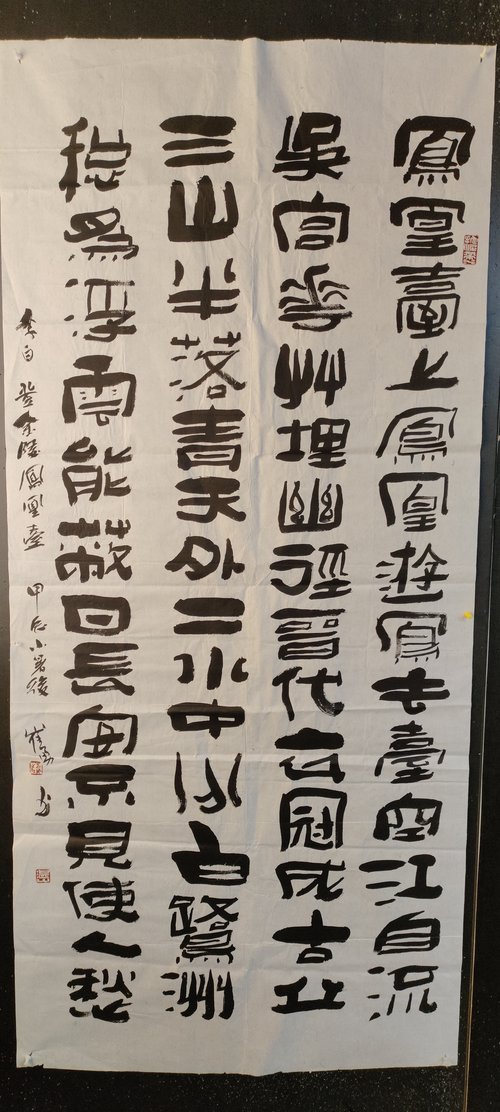 鳳凰臺上鳳凰遊鳳去臺空江自流
吳宮花艸埋幽徑晉代衣冠成古丘
三山半落青天外二水中分白鷺洲
總爲浮雲能蔽日長安不見使人愁
李白 登金陵鳳凰臺 甲辰小暑後 崔 书